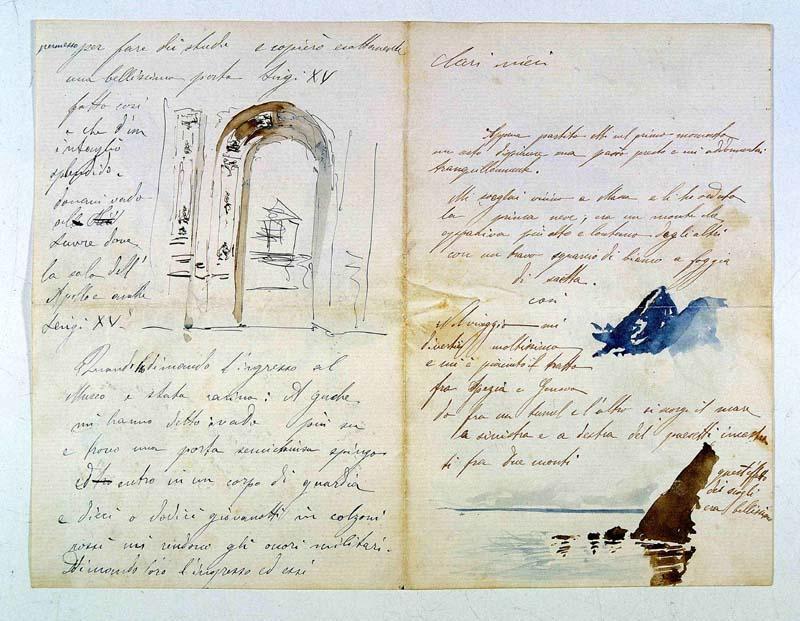 permesso per fare dii studi e copierò esattamente
una bellissima porta Luigi XV
fatto così
e che d'un
intaglio
splendido.
Domani vado
al
Luvre dove
la sala dell'
Apollo e anche
Luigi XV.
Quando dimando l'ingresso al
Museo è stata carina: A Guche
mi hanno detto vada più su
e trovo una porta semichiusa spingo
entro in un corpo di guardia
e dieci o dodici giovanotti in calzoni
rossi mi rendono gli onori militari.
Dimando loro l'ingresso ed essi
Cari miei
Appena partito ebbi nel primo momento
un certo dispiacere ma passò presto e mi addormentai
tranquillamente.
Mi svegliai vicino a Massa e lì ho veduto
la prima neve; era un monte che
appariva più alto e lontano dagli altri
con un bravo sguazzo di bianco a foggia
di saetta.
così
Nel viaggio mi
divertii moltissimo
e mi è piaciuto il tratto
fra Spezia e Genova
fra un tunnel e l'altro si scorge il mare
a sinistra e a destra dei paesetti incastra
ti fra due monti
quest'effetto
dei scogli
era bellissimo